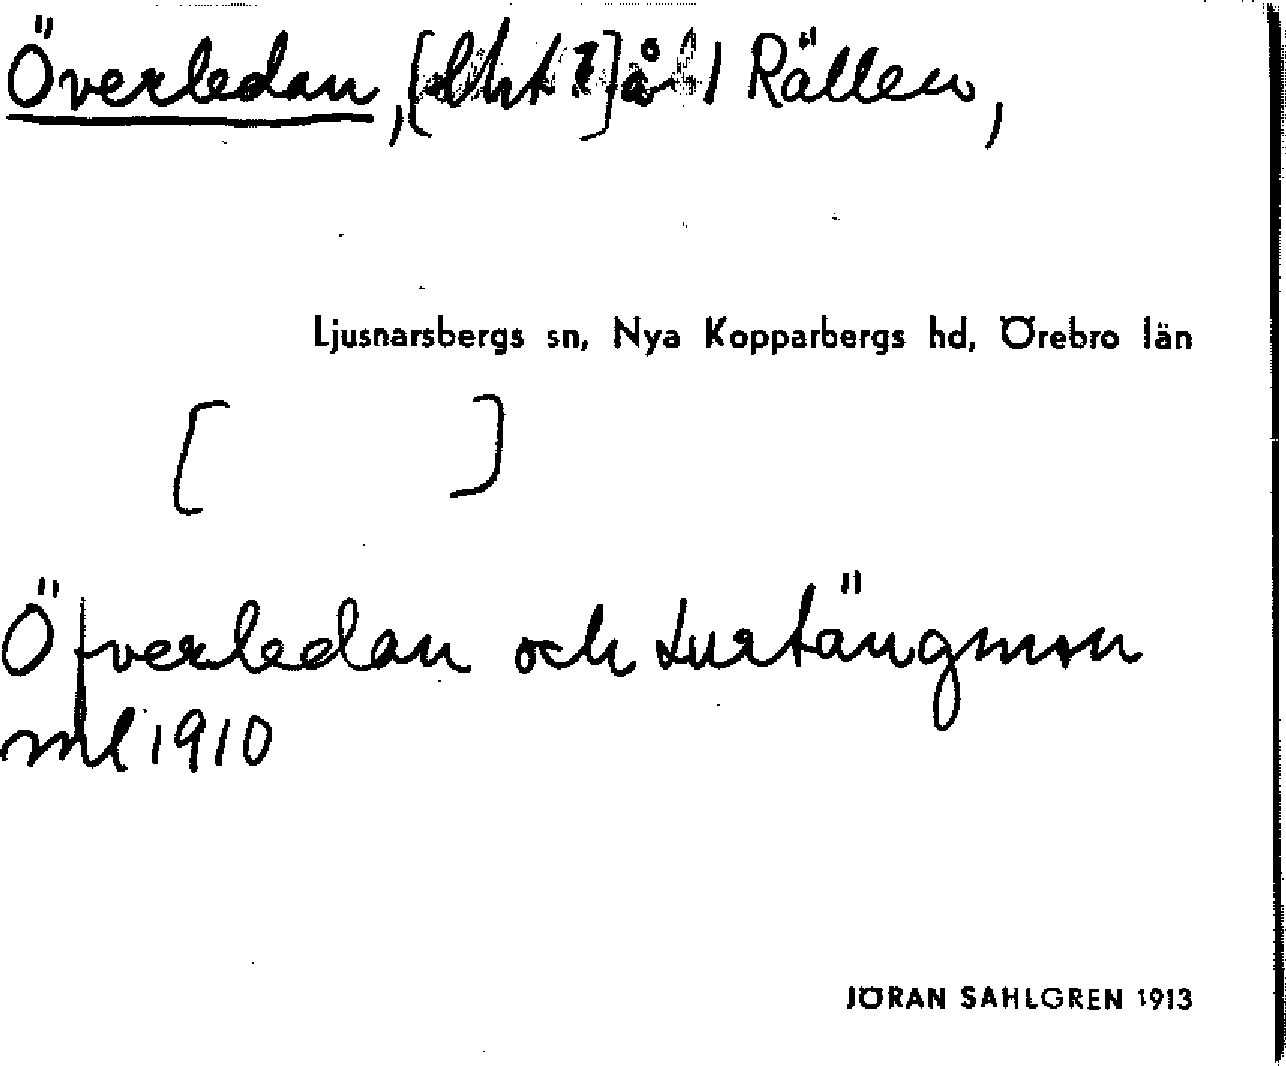 Överledan, [lht?] å 1 Rällen,
Ljusnarsbergs sn, Nya Kopparbergs hd, Örebro län
[ ]
Öfverledan och Lurtängmon
ml 1910
JÖRAN SAHLGREN 1913